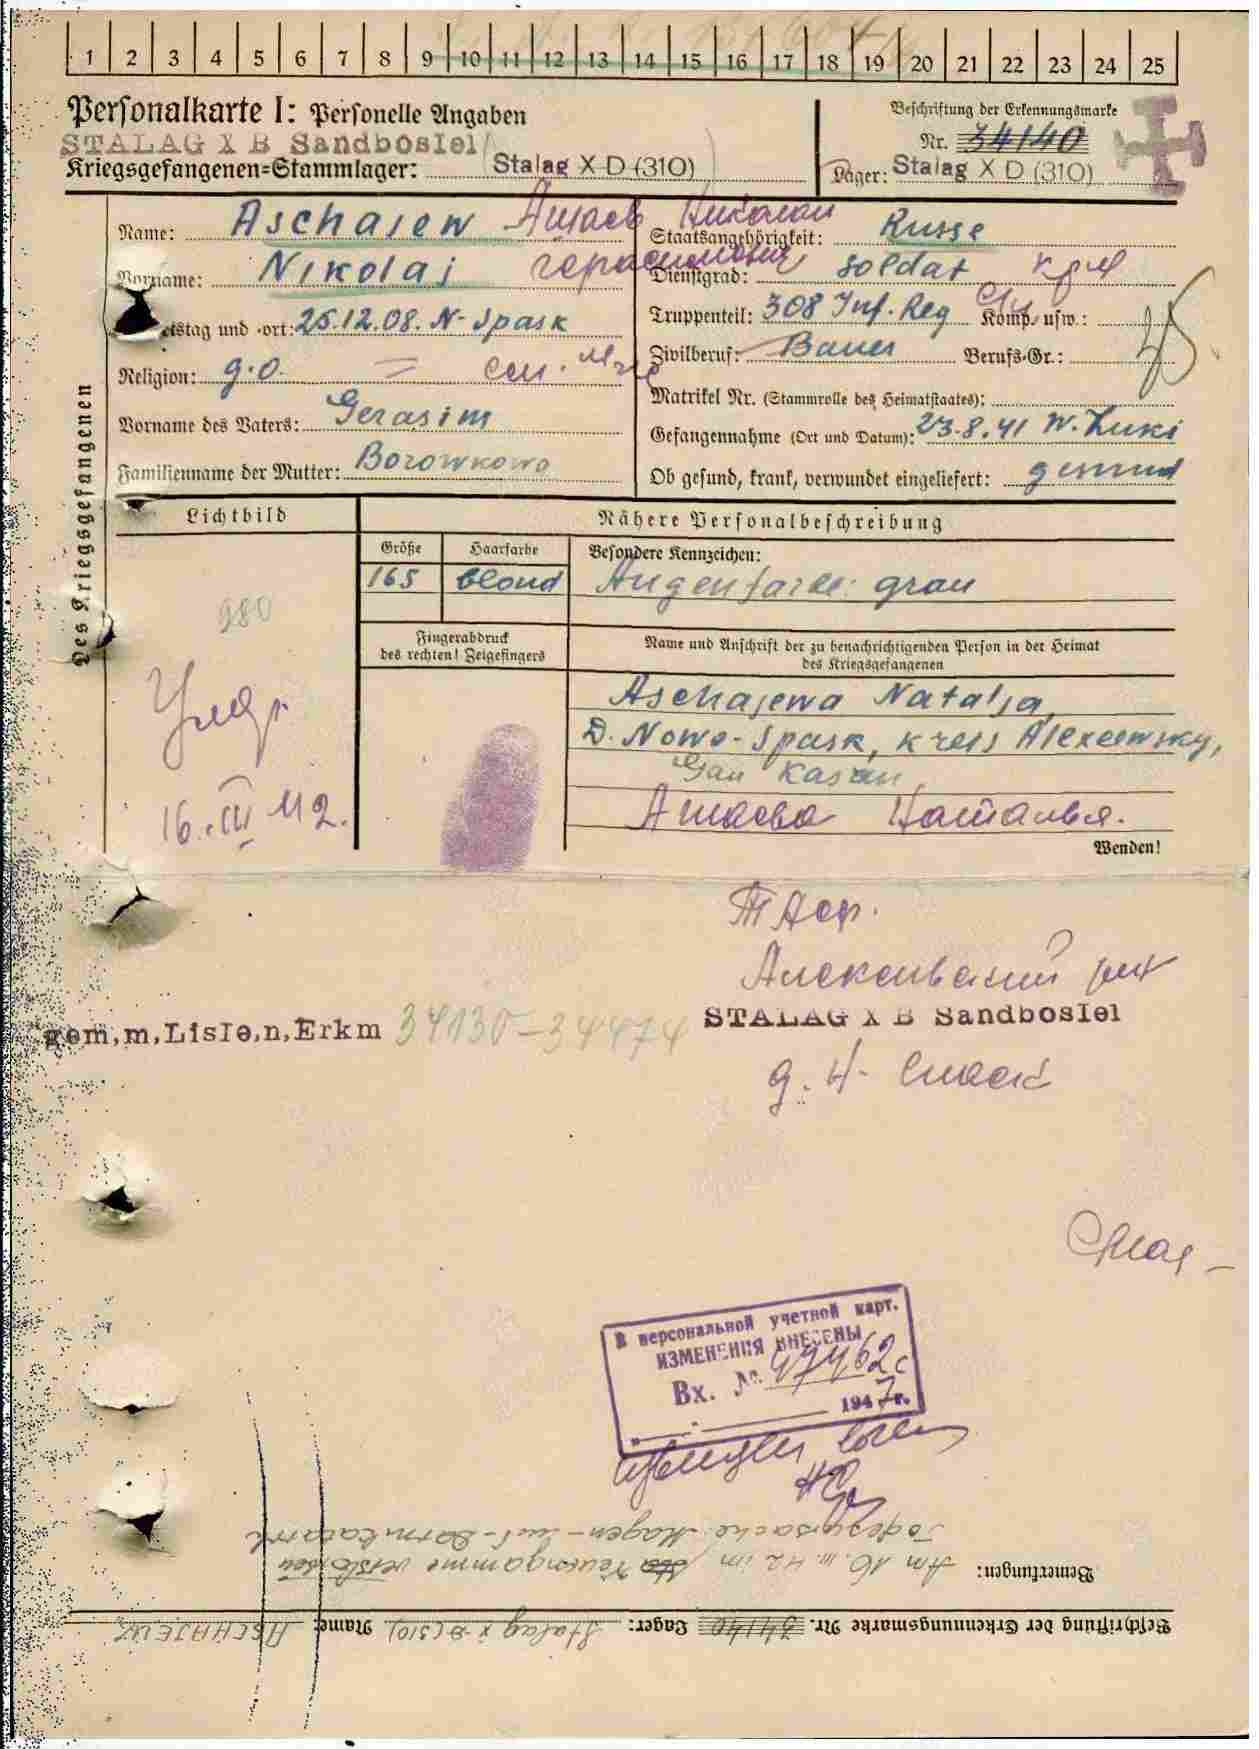 1 2 3 4 5 6 7 8 9 10 11 12 13 14 15 16 17 18 19 20 21 22 23 24 25
Personalkarte I: Personelle Angaben
Beschriftung der Erkennungsmarke
STALAG X B Sandbostel
Nr. 34140
Kriegsgefangenen-Stammlager: Stalag X D (310)
Lager: Stalag X D (310)
Des Kriegsgefangenen
Name: Aschajew Ашаев Николай
Staatsangehörigkeit: Russe
Vorname: Nikolaj Герасимович
Dienstgrad: Soldat кр-ц
etstag und -ort: 25.12.08. N-Spask
Truppenteil: 308 Inf. Reg Komp. usw.:
Zivilberuf: Bauer Berufs-Gr.:
Religion: g.o. =
Matrikel Nr. (Stammrolle des Heimatstaates):
Vorname des Vaters: Gerasim
Gefangennahme (Ort und Datum): 23.8.41 W. Luki
Familienname der Mutter: Borowkowo
Ob gesund, krank, verwundet eingeliefert: gesund
Lichtbild
Nähere Personalbeschreibung
Größe Haarfarbe Besondere Kennzeichen:
165 blond Augenfarbe: grau
Fingerabdruck
des rechten! Zeigefingers
Name und Anschrift der zu benachrichtigenden Person in der Heimat
des Kriegsgefangenen
980
Aschajewa Natalja,
D. Nowo-Spask, Kreis Alexeewsky,
Gau Kasan
Ашаева Наталья.
Умер
16.III 42.
Wenden!
ТАср.
Алексеевский
STALAG X B Sandbostel
gem,m,Liste,n,Erkm 34130-34474
д. Н-Спаск
В персональной учетной карт.
ИЗМЕНЕНИЯ ВНЕСЕНЫ
Вх. № 47462с
1947 г.
Beschriftung der Erkennungsmarke Nr. 34140 Lager: Stalag X D (310) Name: ASCHAJEW
Bemerkungen: Am 16.III.42 im Neuengamme verstorben
Todesursache: Magen- und Darmkatarrh